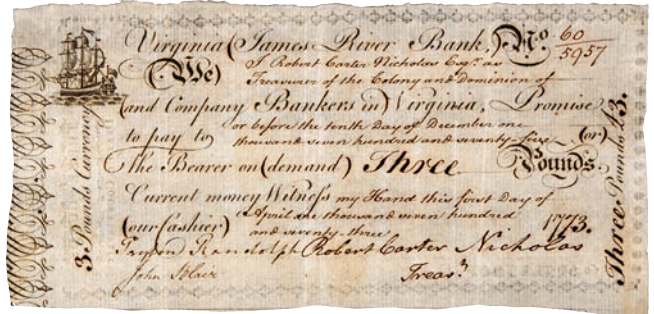 Virginia (James River Bank,) No 60
5957
(We) I Robert Carter Nicholas Esqr. as
Treasurer of the Colony and Dominion of
(and Company Bankers in) Virginia, Promise
to pay to or before the tenth Day of December one
thousand seven hundred and seventy-five (or)
the Bearer on (demand) Three Pounds.
Current money Witness my Hand this first Day of
(our Cashier) April one thousand seven hundred
and seventy-three 1773.
Peyton Randolph Robert Carter Nicholas
John Blair Treasr.
3 Pounds Currency
Three Pounds £3.